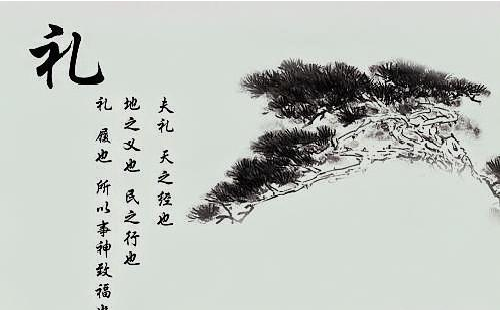 礼
夫礼 天之经也
地之义也 民之行也
礼 履也 所以事神致福也